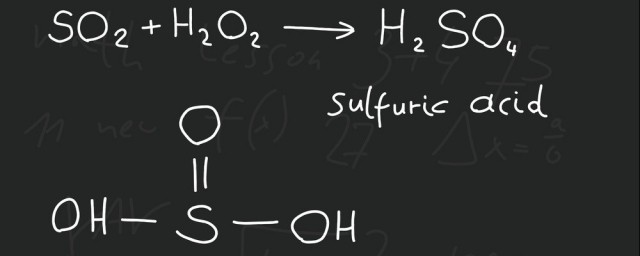 SO₂ + H₂O₂ → H₂SO₄
sulfuric acid
O
||
OH — S — OH